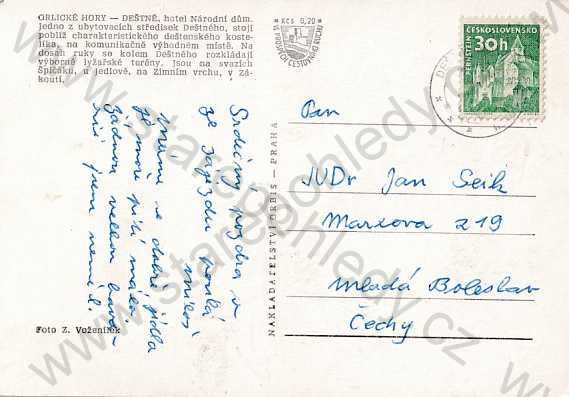 ORLICKÉ HORY — DEŠTNÉ, hotel Národní dům,
jedno z ubytovacích středisek Deštného, stojí
poblíž charakteristického deštenského koste-
líka, na komunikačně výhodném místě. Na
dosah ruky se kolem Deštného rozkládají
výborné lyžařské terény. Jsou na svazích
Špičáku, u jedlové, na Zimním vrchu, v Zá-
koutí.
Kčs 0,20
ČESKOSLOVENSKO
30h
PERNŠTEJN
Srdečný pozdrav
ze zájezdu
Máme se dobře jídla
je moře pití málo
žádnou velkou
jsem neměl.
Foto Z. Voženílek
NAKLADATELSTVÍ ORBIS — PRAHA
Pan
JUDr Jan Seik
Marxova 219
Mladá Boleslav
Čechy
www.staropohledy.cz